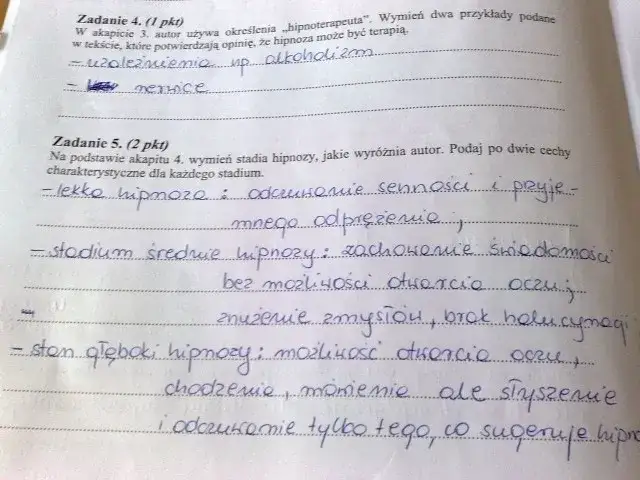 Zadanie 4. (1 pkt)
W akapicie 3. autor używa określenia „hipnoterapeuta”. Wymień dwa przykłady podane
w tekście, które potwierdzają opinię, że hipnoza może być terapią.
- uzależnienia np. alkoholizm
- nerwice
Zadanie 5. (2 pkt)
Na podstawie akapitu 4. wymień stadia hipnozy, jakie wyróżnia autor. Podaj po dwie cechy
charakterystyczne dla każdego stadium.
- lekka hipnoza : odczuwanie senności i przyje-
mnego odprężenia ,
- stadium średnie hipnozy : zachowanie świadomości
bez możliwości otwarcia oczu ;
- znużenie zmysłów , brak halucynacji
- stan głęboki hipnozy : możliwość otwarcia oczu ,
chodzenie , mówienie ale słyszenie
i odczuwanie tylko tego, co sugeruje hipno